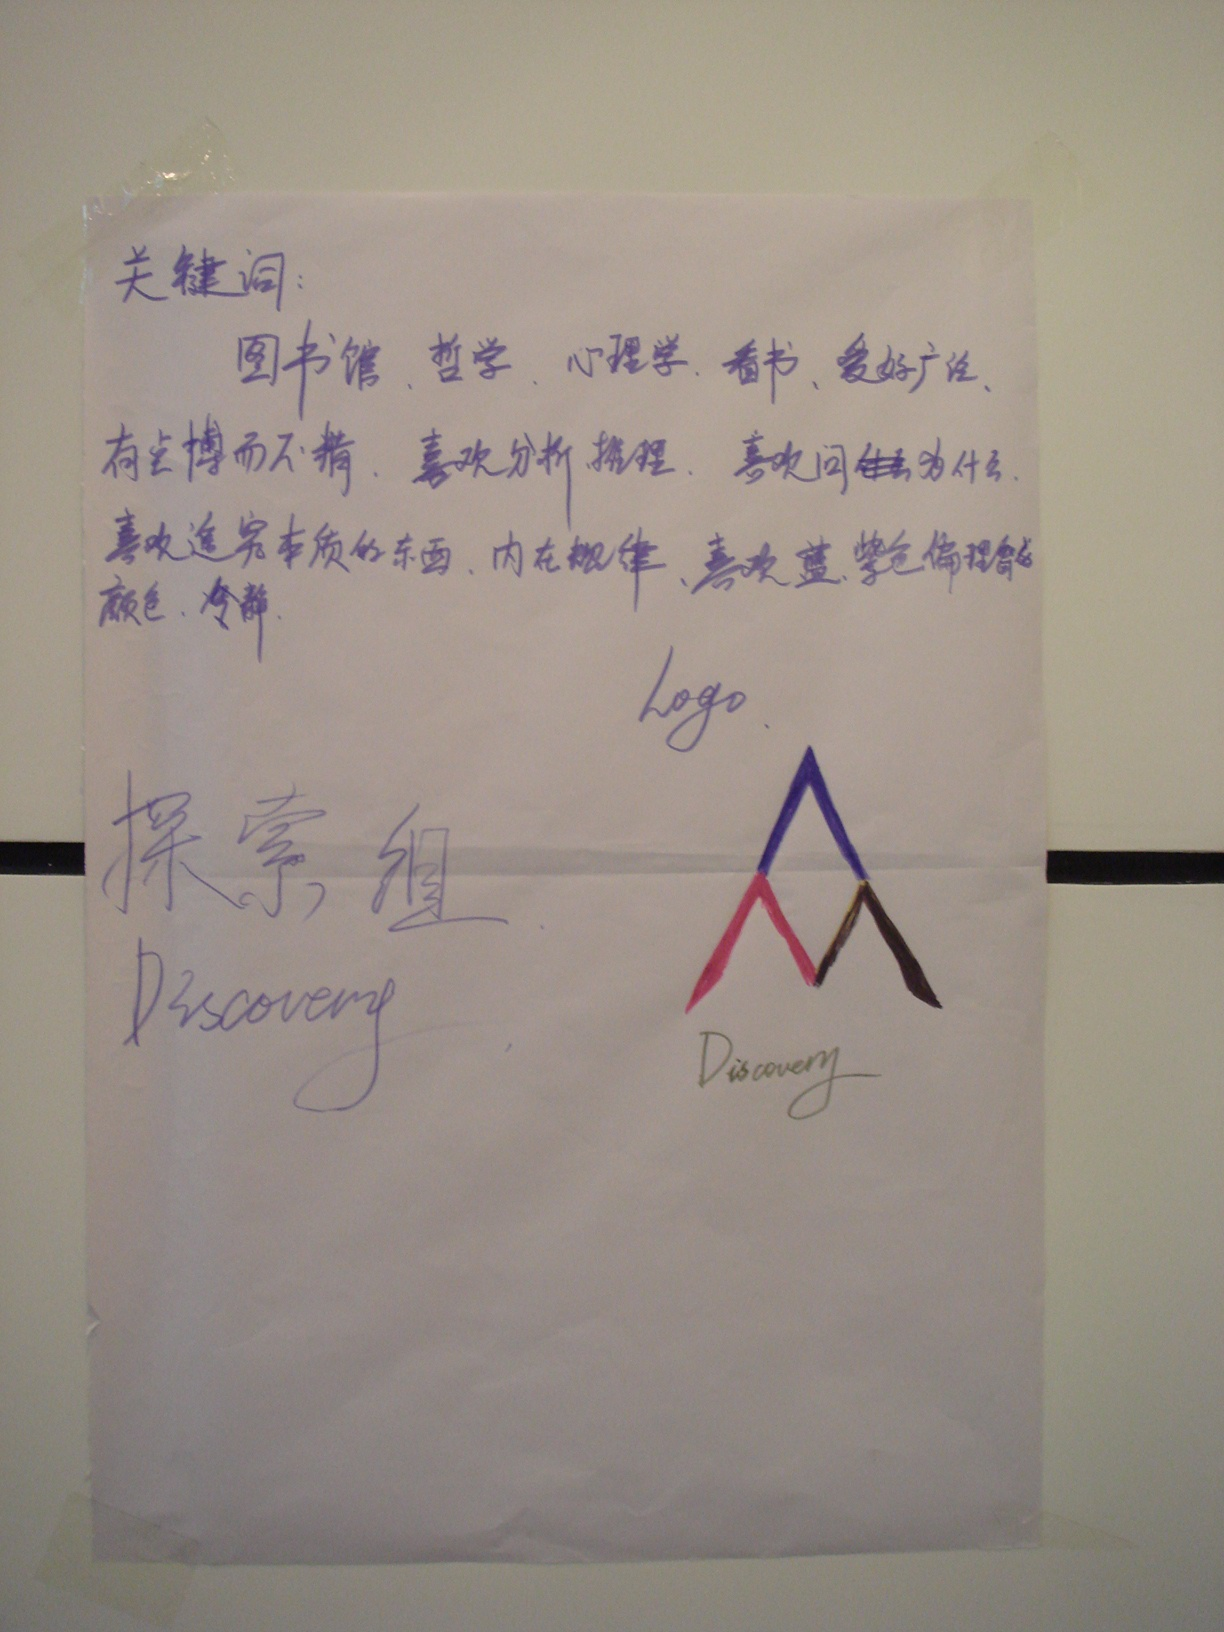 关键词：
图书馆、哲学、心理学、看书、爱好广泛、
有点博而不精、喜欢分析、推理、喜欢问为什么、
喜欢追究本质的东西、内在规律、喜欢蓝、紫色偏理智的
颜色、冷静.
Logo.
探索组.
Discovery
Discovery